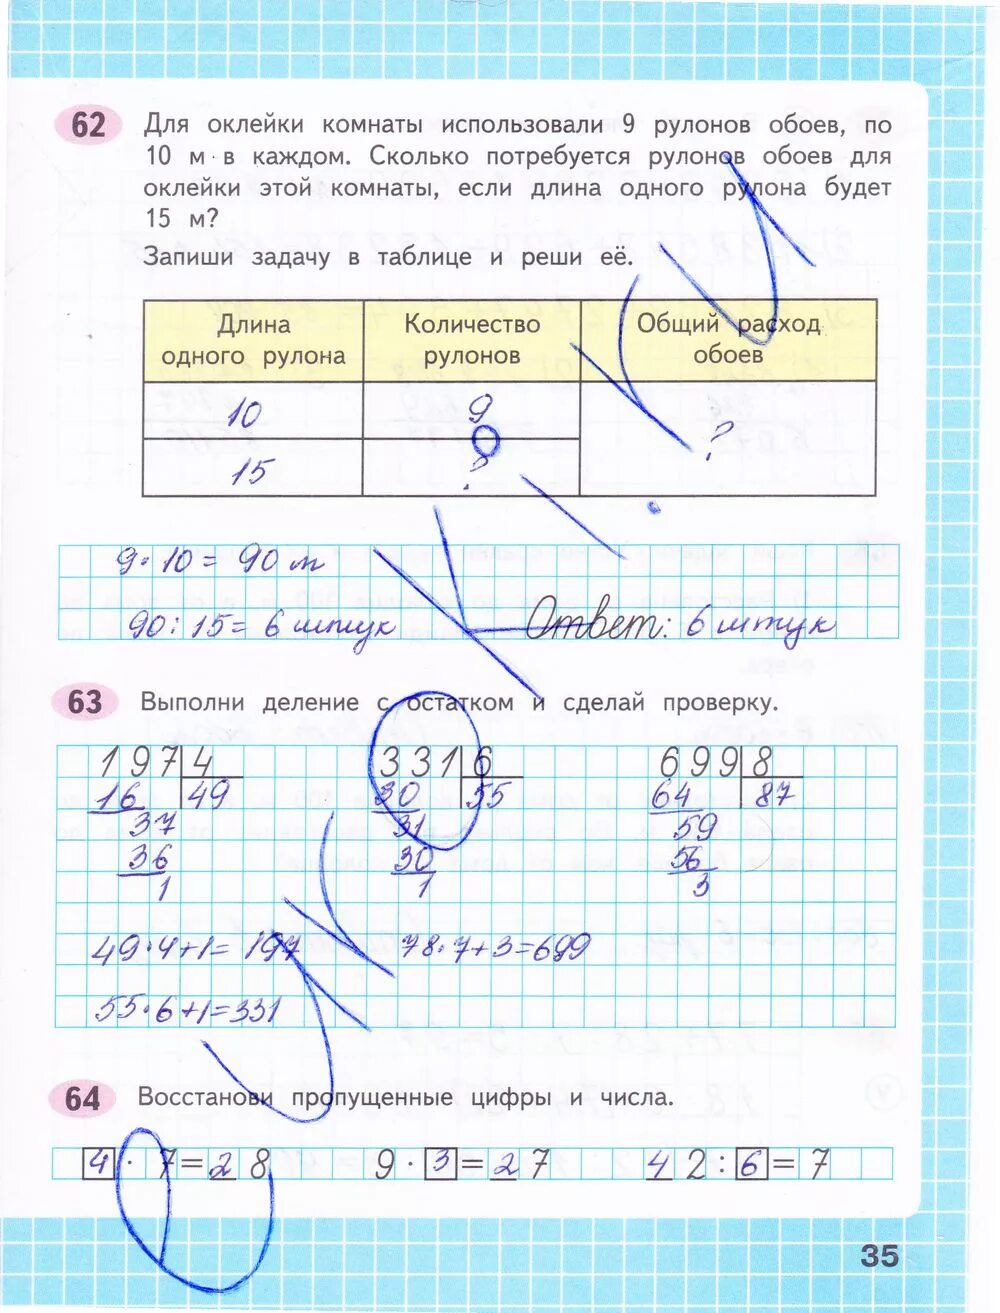 62
Для оклейки комнаты использовали 9 рулонов обоев, по
10 м в каждом. Сколько потребуется рулонов обоев для
оклейки этой комнаты, если длина одного рулона будет
15 м?
Запиши задачу в таблице и реши её.
Длина одного рулона
Количество рулонов
Общий расход обоев
10
9
?
15
?
9·10 = 90 м
90 : 15 = 6 штук Ответ: 6 штук
63
Выполни деление с остатком и сделай проверку.
197 4 331 6 699 8
16 49 30 55 64 87
37 31 59
36 30 56
1 1 3
49·4+1=197 78·7+3=699
55·6+1=331
64
Восстанови пропущенные цифры и числа.
4 · 7 = 28 9 · 3 = 27 42 : 6 = 7
35